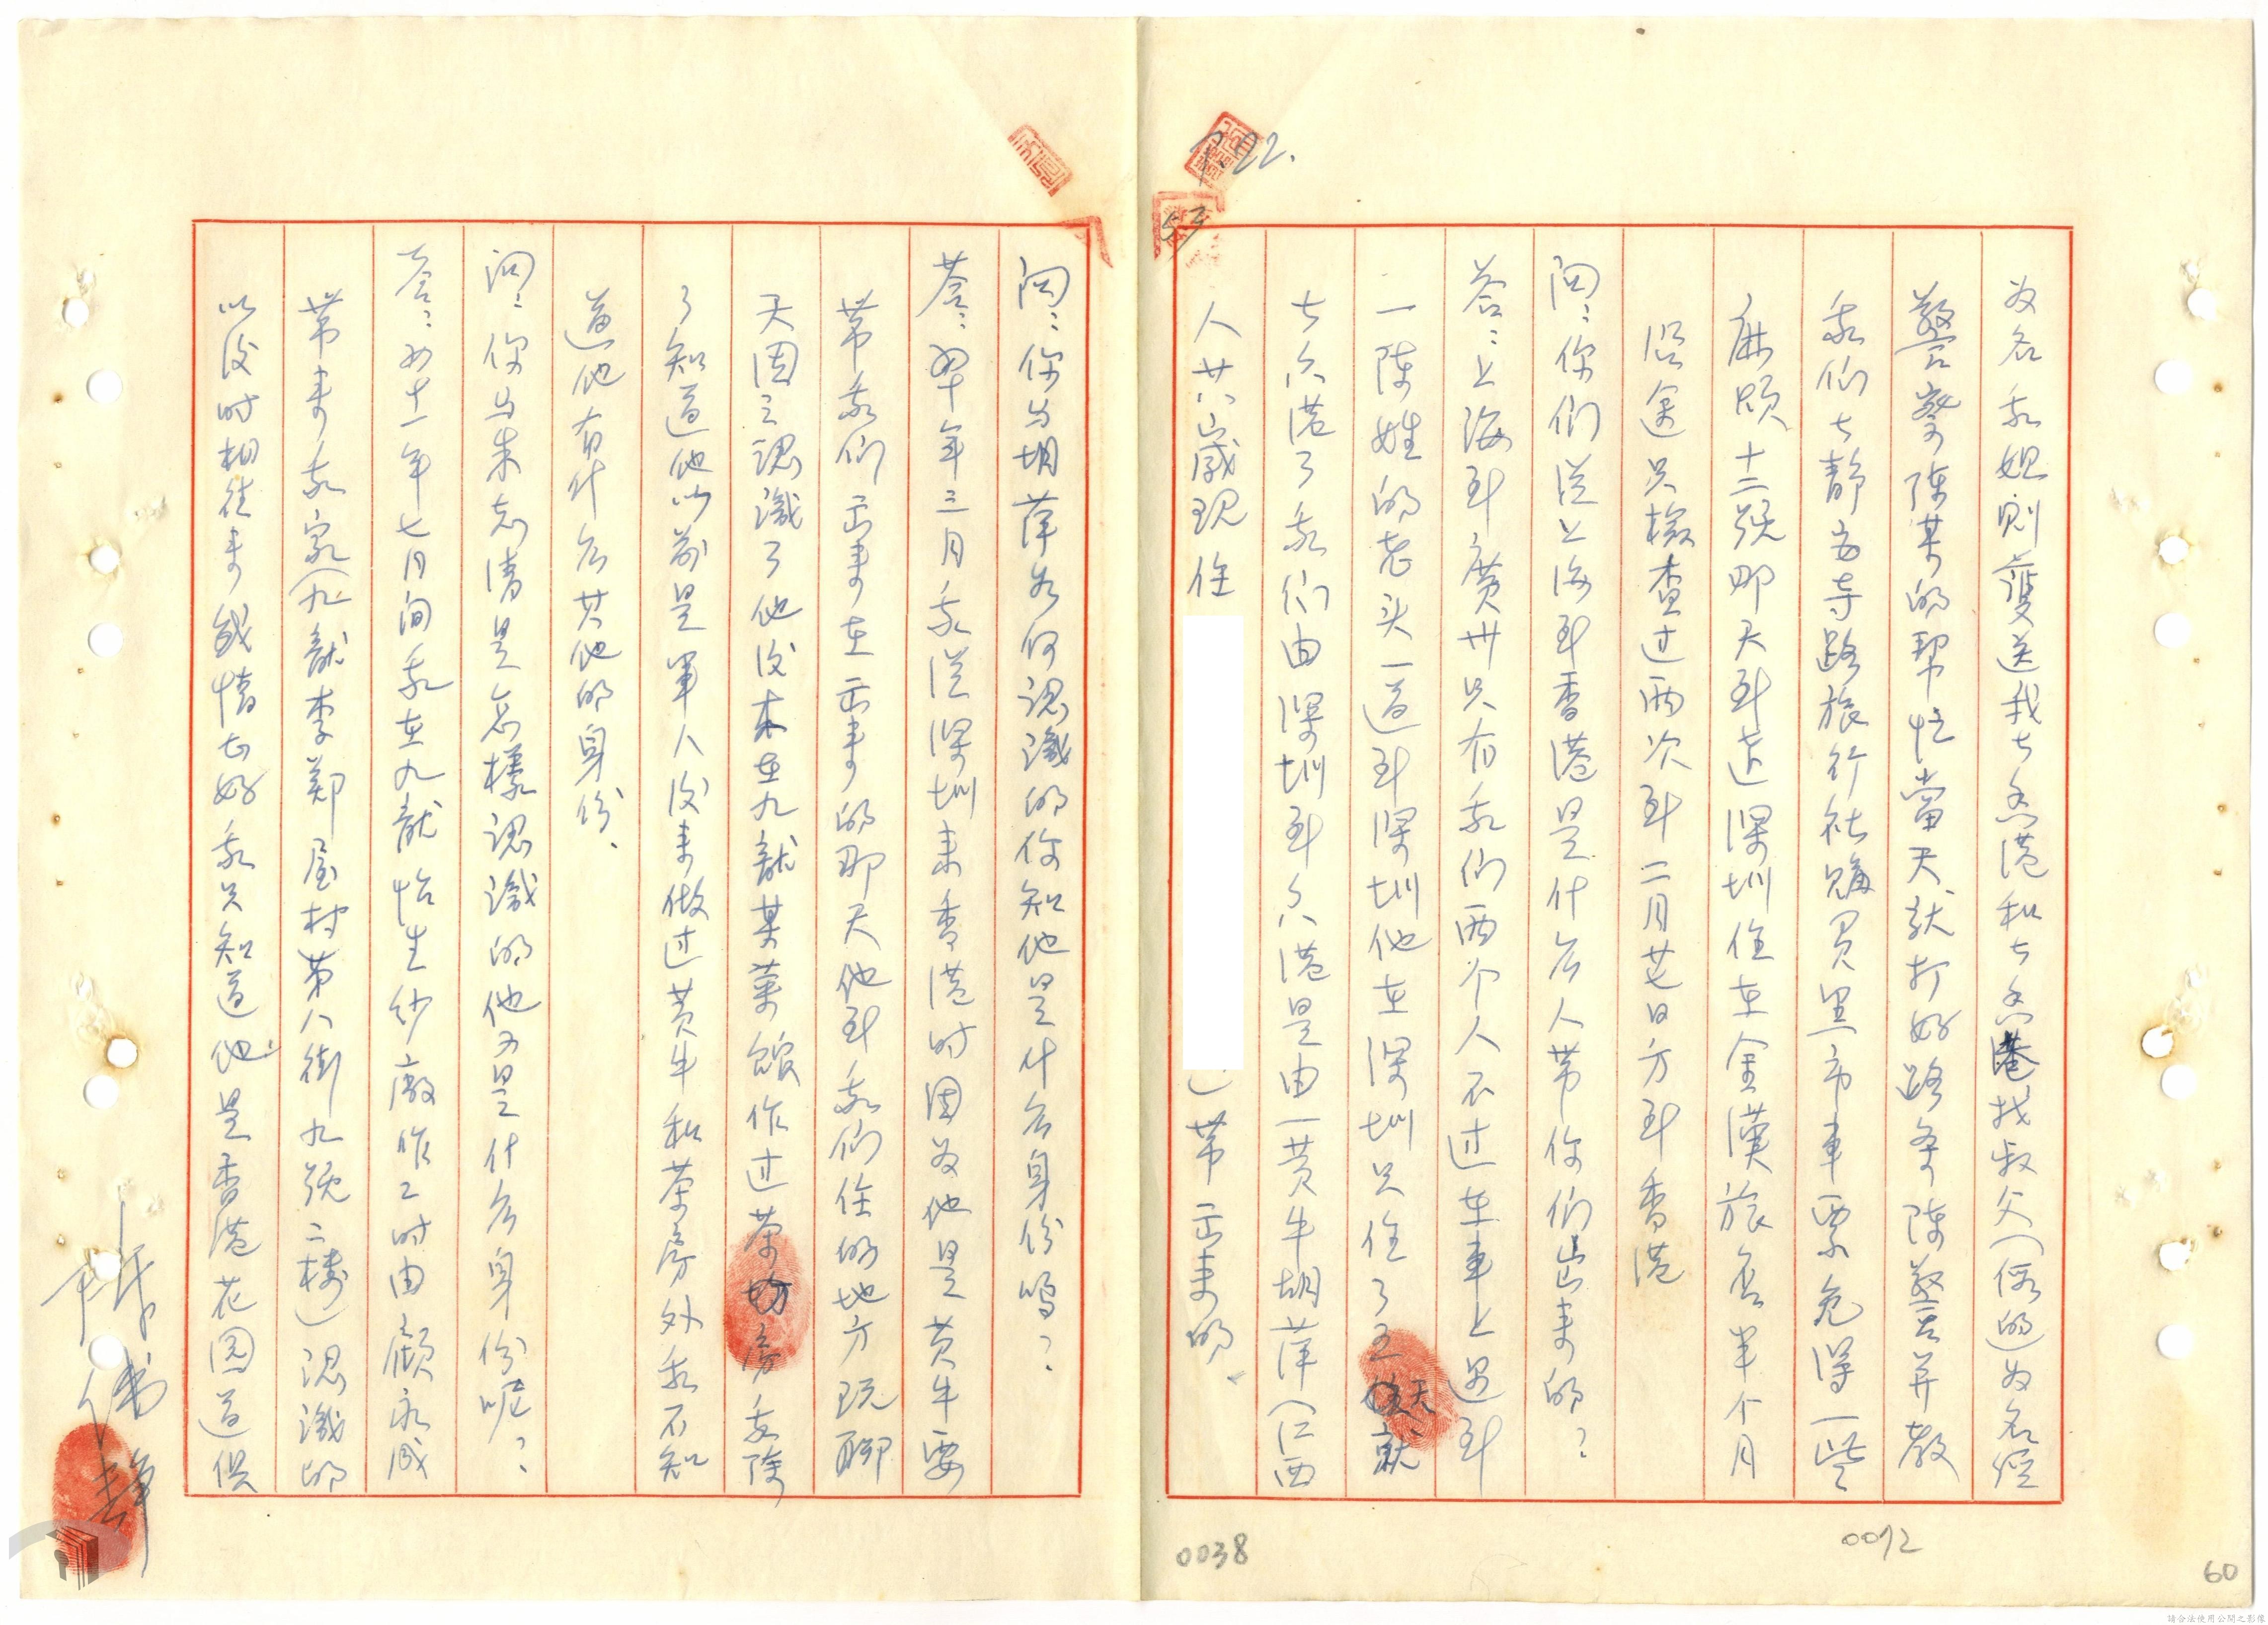 為名我姐則護送我去香港和去香港找叔父(假的)為名經
警察陳某的帮忙當天就打好路条陳警并教
我們去静安寺路旅行社購買黑市車票免得一些
麻煩十二號那天到達深圳住在金漢旅舍半个月
沿途只檢查过兩次到二月廿七日方到香港
問:你們從上海到香港是什么人带你們出来的?
答:上海到廣州只有我們兩个人不过在車上遇到
一陳姓的老头一道到深圳他在深圳只住了三天就
去六港了我們由深圳到六港是由一黄牛胡萍(江西
人廿八歲現住
)带出来的
問:你与胡萍如何認識的你知他是什么身份嗎?
答:四十年三月我從深圳来香港时因為他是黄牛要
带我們出来在出来的那天他到我們住的地方玩聊
天因之認識了他後来在九龍某菜館作过茶房我除
了知道他以前是軍人後来做过黄牛和茶房外我不知
道他有什么其他的身份、
問:你与朱志清是怎樣認識的他又是什么身份呢?
答:四十一年七月间我在九龍怡生纱廠作工时由顧永成
带来我家(九龍李鄭屋村第八街九號二樓)認識的
以後时相往来感情甚好我只知道他是香港花園道俱
P.22.
57
0038
0072
60
請合法使用公開之影像